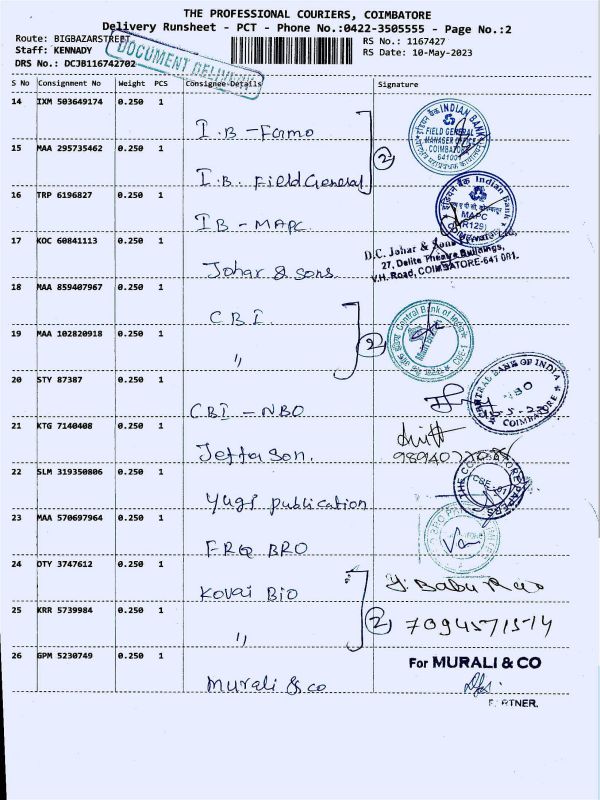 THE PROFESSIONAL COURIERS, COIMBATORE
Delivery Runsheet - PCT - Phone No.:0422-3505555 - Page No.:2
Route: BIGBAZARSTREET
RS No.: 1167427
Staff: KENNADY
RS Date: 10-May-2023
DRS No.: DCJB116742702
DOCUMENT DELIVERY
S No Consignment No Weight PCS Consignee Details Signature
14 IXM 503649174 0.250 1
I.B - Famo
INDIAN BANK
FIELD GENERAL
MANAGER OFFICE
COIMBATORE
641001
15 MAA 295735462 0.250 1
2
I.B. Field General
16 TRP 6196827 0.250 1
IB - MAPC
Indian Bank
MAPC
17 KOC 60841113 0.250 1
Johar & sons
D.C. Johar & Sons Private Ltd.,
27, Delite Theatre Buildings,
V.H. Road, COIMBATORE-641 001.
18 MAA 859407967 0.250 1
CBI
Central Bank of India
CBE-1
19 MAA 102820918 0.250 1
2
"
20 STY 87387 0.250 1
CBI - NBO
CENTRAL BANK OF INDIA
NBO
COIMBATORE
21 KTG 7140408 0.250 1
Jefferson.
22 SLM 319350806 0.250 1
Yugi publication
23 MAA 570697964 0.250 1
FRQ BRO
24 OTY 3747612 0.250 1
Kovai Bio
Y. Babu Rao
25 KRR 5739984 0.250 1
"
2
7094571514
26 GPM 5230749 0.250 1
Murali & co
For MURALI & CO
PARTNER.